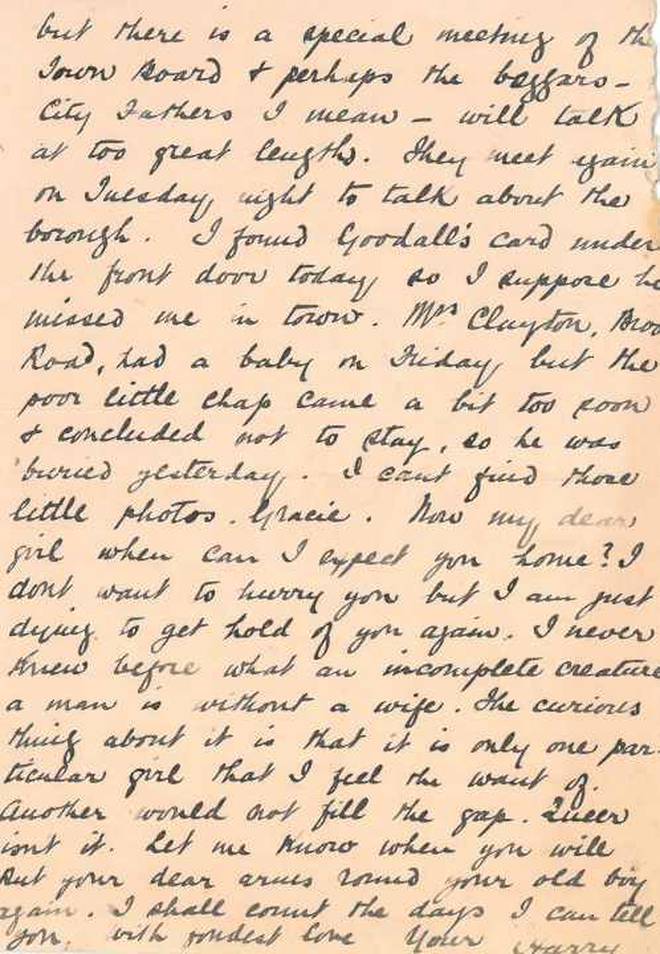 but there is a special meeting of th
Town Board & perhaps the beggars -
City Fathers I mean - will talk
at too great lengths. They meet again
on Tuesday night to talk about the
borough. I found Goodall's card under
the front door today so I suppose he
missed me in town. Mrs Clayton, Broo
Road, had a baby on Friday but the
poor little chap came a bit too soon
& concluded not to stay, so he was
buried yesterday. I cant find those
little photos. Gracie. Now my dear
girl when can I expect you home? I
dont want to hurry you but I am just
dying to get hold of you again. I never
knew before what an incomplete creature
a man is without a wife. The curious
thing about it is that it is only one par-
ticular girl that I feel the want of.
Another would not fill the gap. Queer
isnt it. Let me know when you will
put your dear arms round your old boy
again. I shall count the days I can tell
you, with fondest love Your Harry